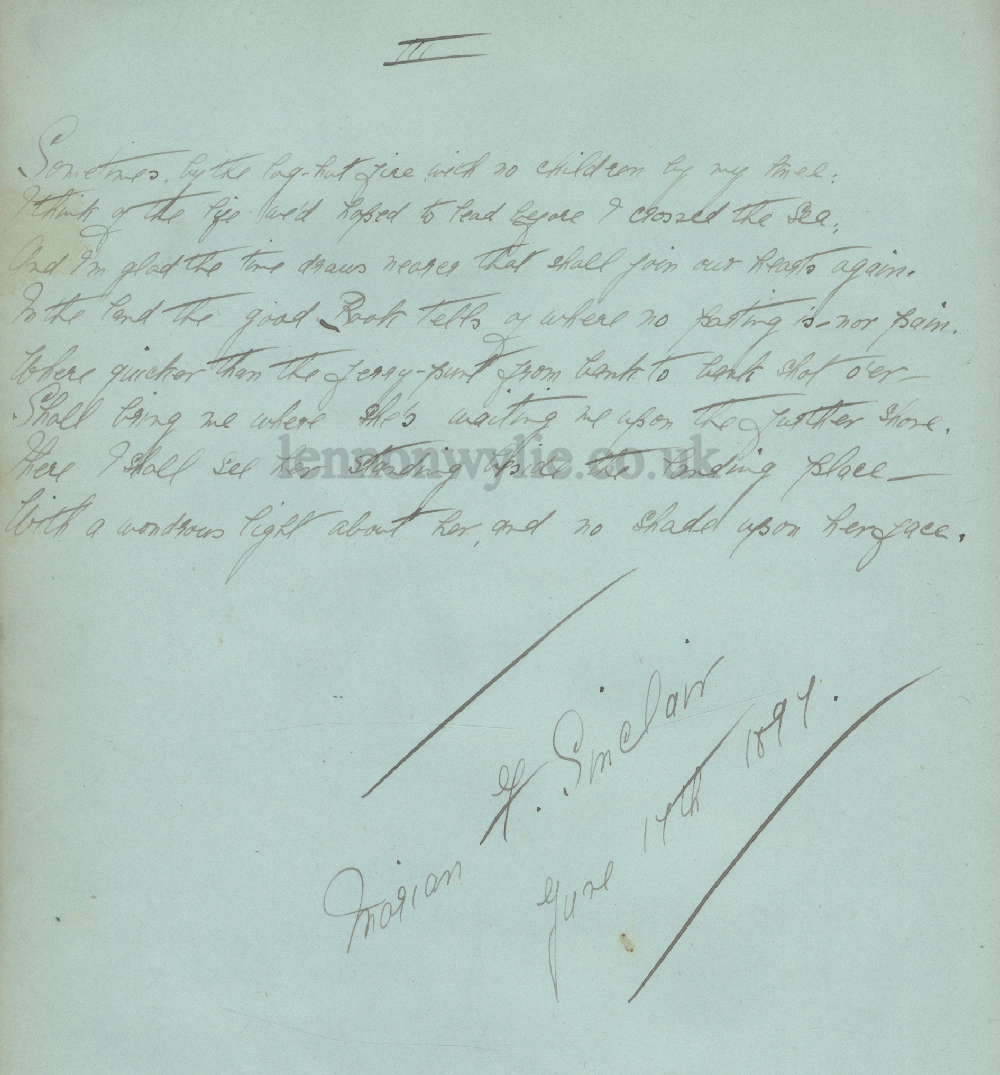 III
Sometimes, by the log-hut fire with no children by my knee:
I think of the life we'd hoped to lead before I crossed the sea;
And I'm glad the time draws nearer that shall join our hearts again.
In the land the good Book tells of where no parting is - nor pain.
Where quicker than the ferry-punt from bank to bank shot o'er -
Shall bring me where she's waiting me upon the further shore.
There I shall see her standing beside the landing place -
With a wondrous light about her, and no shade upon her face.
lennonwylie.co.uk
Marian Y. Sinclair
June 14th 1897.